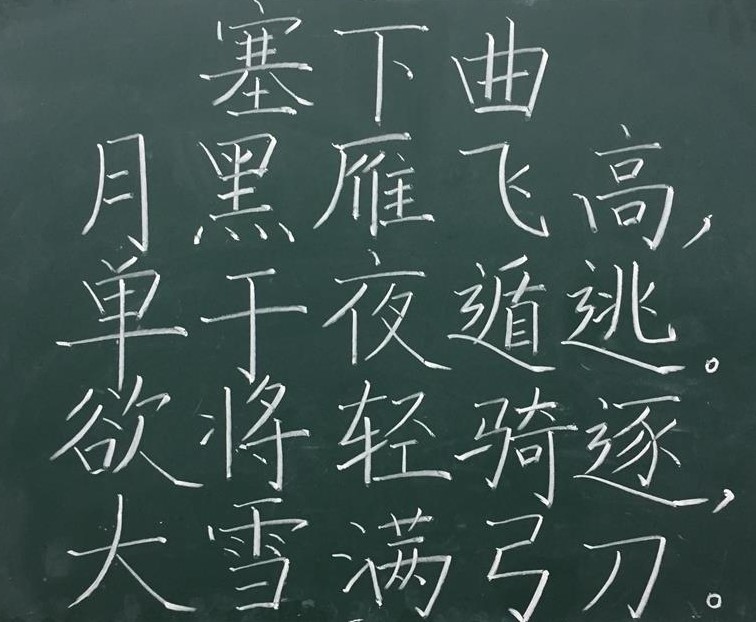 塞下曲
月黑雁飞高，
单于夜遁逃。
欲将轻骑逐，
大雪满弓刀。